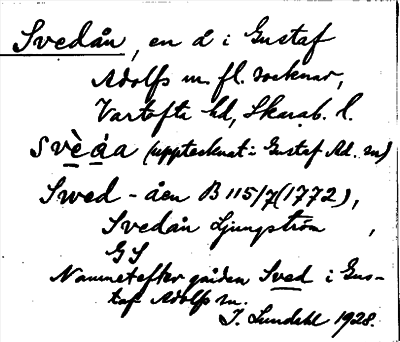 Svedån, en å i Gustaf
Adolfs m. fl. socknar,
Vartofta hd, Skarab. l.
Svèåa (upptecknat i Gustaf Ad. sn)
Swed-åen B 115/7 (1772),
Svedån Ljungström,
GS
Namnet efter gården Sved i Gus-
taf Adolfs sn.
I. Lundahl 1928.